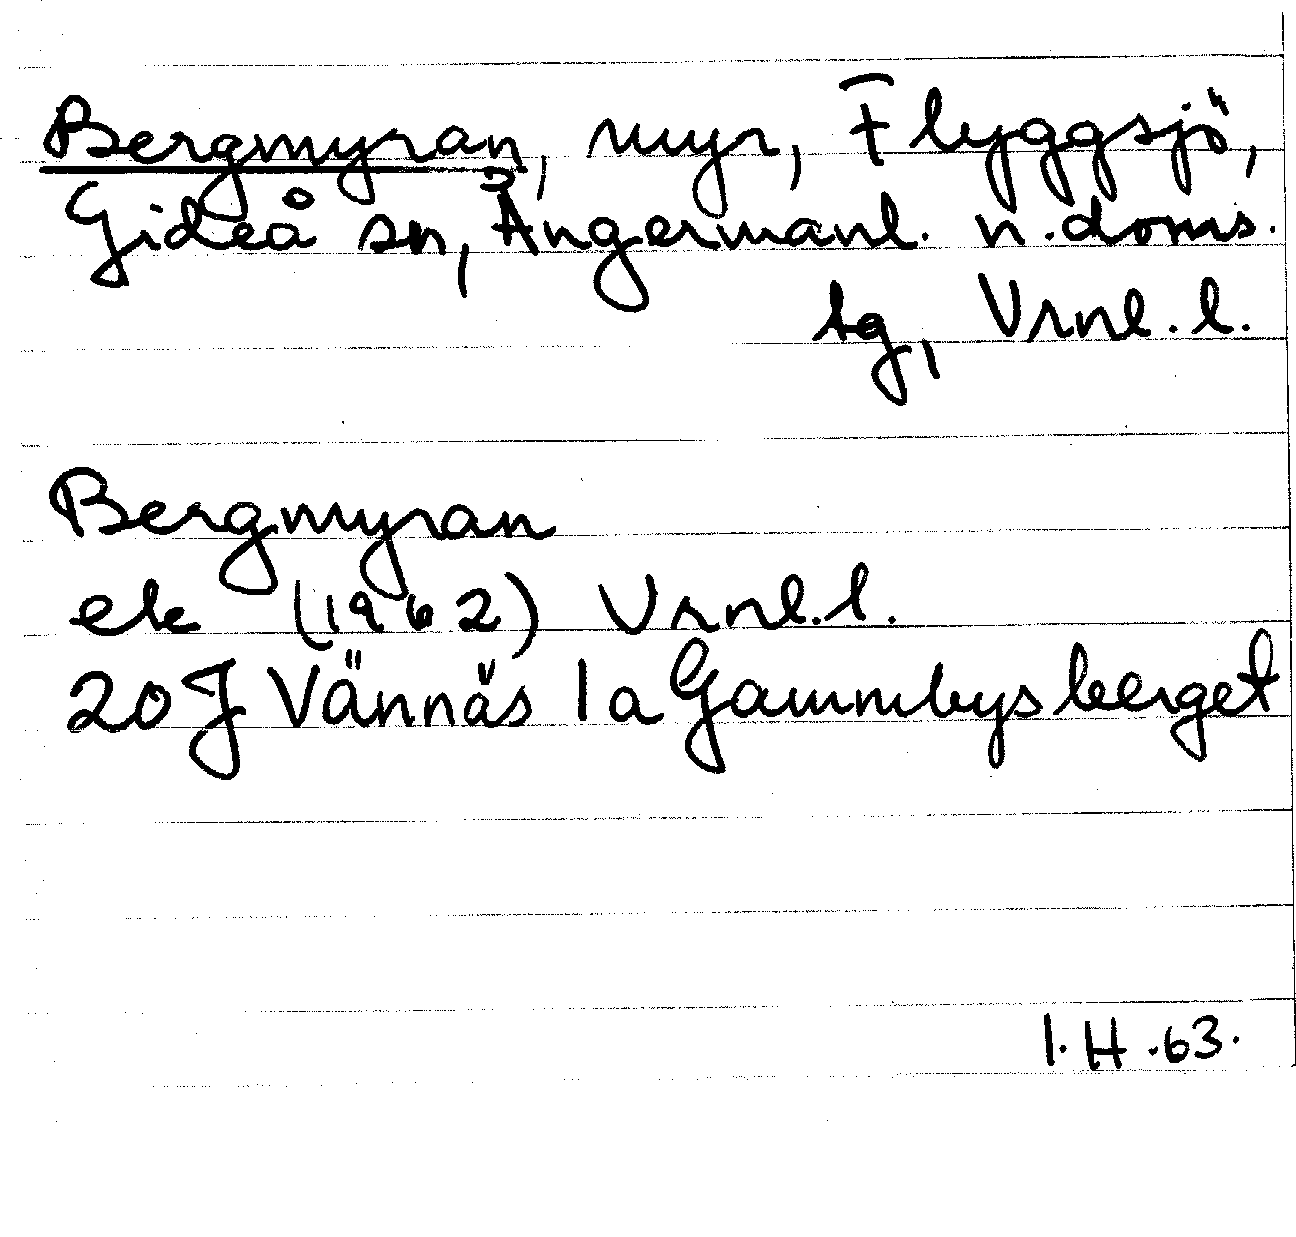 Bergmyran, myr, Flyggsjö,
Gideå sn, Ångermanl. n. doms.
tg, Vrnl. l.
Bergmyran
ek (1962) Vrnl. l.
20 J Vännäs 1 a Gammbysberget
I. H. 63.